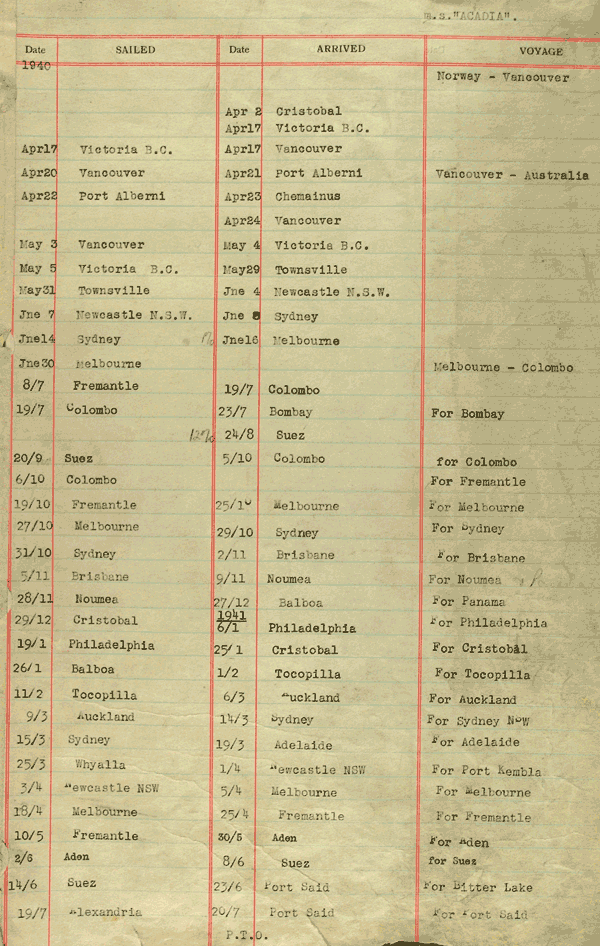 m.s."ACADIA".
Date SAILED Date ARRIVED VOYAGE
1940
Norway - Vancouver
Apr 2 Cristobal
Apr17 Victoria B.C.
Apr17 Victoria B.C. Apr17 Vancouver
Apr20 Vancouver Apr21 Port Alberni Vancouver - Australia
Apr22 Port Alberni Apr23 Chemainus
Apr24 Vancouver
May 3 Vancouver May 4 Victoria B.C.
May 5 Victoria B.C. May29 Townsville
May31 Townsville Jne 4 Newcastle N.S.W.
Jne 7 Newcastle N.S.W. Jne 8 Sydney
Jne14 Sydney Jne16 Melbourne
Jne30 Melbourne Melbourne - Colombo
8/7 Fremantle 19/7 Colombo
19/7 Colombo 23/7 Bombay For Bombay
24/8 Suez
20/9 Suez 5/10 Colombo for Colombo
6/10 Colombo For Fremantle
19/10 Fremantle 25/10 Melbourne For Melbourne
27/10 Melbourne 29/10 Sydney For Sydney
31/10 Sydney 2/11 Brisbane For Brisbane
5/11 Brisbane 9/11 Noumea For Noumea
28/11 Noumea 27/12 Balboa For Panama
29/12 Cristobal 1941 6/1 Philadelphia For Philadelphia
19/1 Philadelphia 25/1 Cristobal For Cristobal
26/1 Balboa 1/2 Tocopilla For Tocopilla
11/2 Tocopilla 6/3 Auckland For Auckland
9/3 Auckland 14/3 Sydney For Sydney NSW
15/3 Sydney 19/3 Adelaide For Adelaide
25/3 Whyalla 1/4 Newcastle NSW For Port Kembla
3/4 Newcastle NSW 5/4 Melbourne For Melbourne
18/4 Melbourne 25/4 Fremantle For Fremantle
10/5 Fremantle 30/5 Aden For Aden
2/6 Aden 8/6 Suez for Suez
14/6 Suez 23/6 Port Said For Bitter Lake
19/7 Alexandria 20/7 Port Said For Port Said
P.T.O.